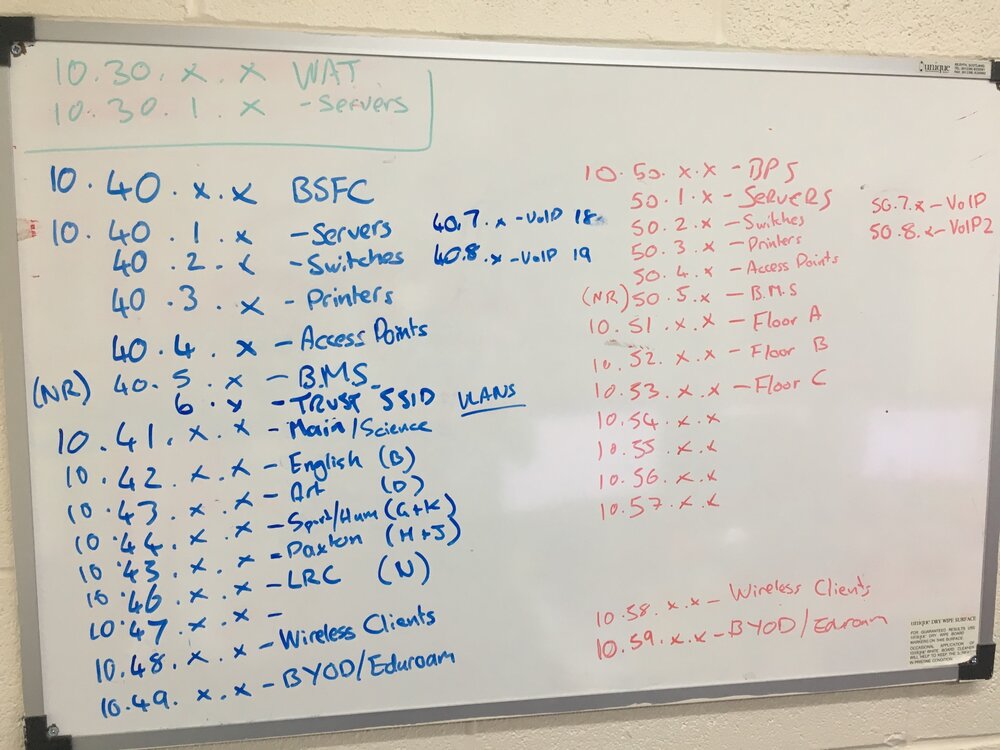 10.30.x.x WAT
10.30.1.x -Servers
10.40.x.x BSFC
10.40.1.x -Servers
40.2.x -Switches
40.3.x -Printers
40.4.x -Access Points
(NR) 40.5.x -B.M.S
6.x -TRUST SSID VLANS
10.41.x.x -Main/Science
10.42.x.x -English (B)
10.43.x.x -Art (D)
10.44.x.x -Sport/Hum (G+K)
10.45.x.x -Paxton (H+J)
10.46.x.x -LRC (N)
10.47.x.x -
10.48.x.x -Wireless Clients
10.49.x.x -BYOD/Eduroam
40.7.x -VoIP 18
40.8.x -VoIP 19
10.50.x.x -BPS
50.1.x -SERVERS
50.2.x -Switches
50.3.x -Printers
50.4.x -Access Points
(NR) 50.5.x -B.M.S
10.51.x.x -Floor A
10.52.x.x -Floor B
10.53.x.x -Floor C
10.54.x.x
10.55.x.x
10.56.x.x
10.57.x.x
10.58.x.x -Wireless Clients
10.59.x.x -BYOD/Eduroam
50.7.x -VoIP
50.8.x -VoIP2
unique
unique DRY WIPE SURFACE
FOR GUARANTEED RESULTS USE
unique DRY WIPE BOARD
MARKERS ON THIS SURFACE.
OCCASIONAL APPLICATION OF
unique WHITE BOARD CLEANER
WILL HELP TO KEEP THE
IN PRISTINE CONDITION.